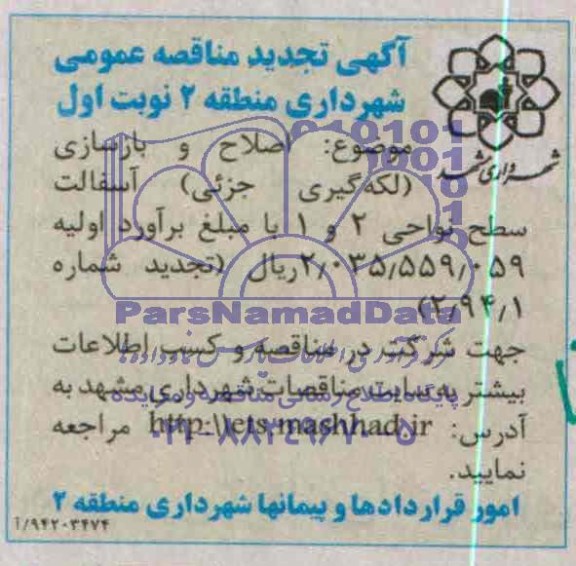 آگهی تجدید مناقصه عمومی
شهرداری منطقه ۲ نوبت اول
شهرداری مشهد
موضوع: اصلاح و بازسازی
(لکه‌گیری جزئی) آسفالت
سطح نواحی ۲ و ۱ با مبلغ برآورد اولیه
۲٫۰۳۵٫۵۵۹٫۰۵۹ریال (تجدید شماره
۲٫۹۴٫۱)
ParsNamadData
جهت شرکت در مناقصه و کسب اطلاعات
بیشتر به سایت مناقصات شهرداری مشهد به
آدرس: http:\\ets.mashhad.ir مراجعه
نمایید.
امور قراردادها و پیمانها شهرداری منطقه ۲
۹۴۲۰۳۴۷۴/آ